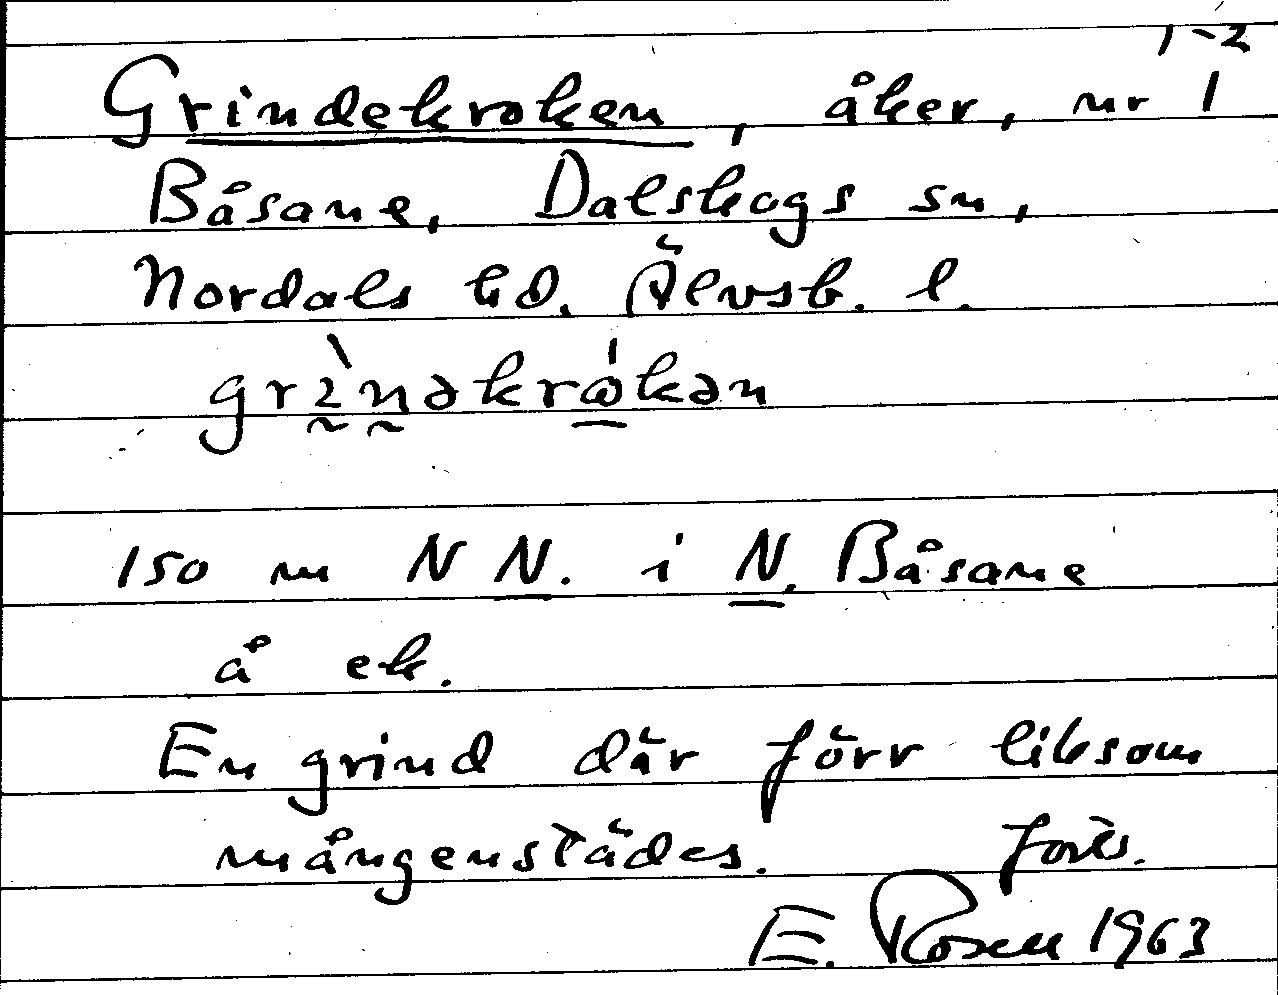 1-2
Grindekroken, åker, nr 1
Båsane, Dalskogs sn,
Nordals hd. Älvsb. l.
150 m N N. i N. Båsane
å ek.
En grind där förr liksom
mångenstädes. forts.
E. Rosell 1963